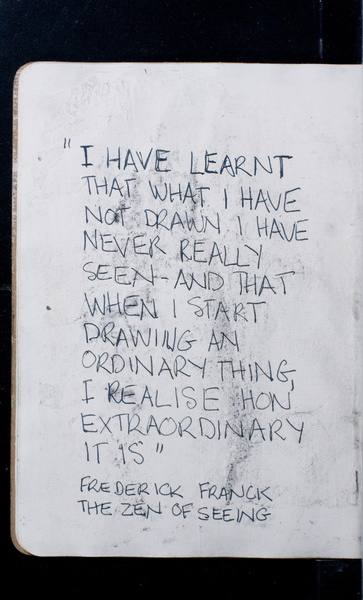 "I HAVE LEARNT
THAT WHAT I HAVE
NOT DRAWN I HAVE
NEVER REALLY
SEEN-AND THAT
WHEN I START
DRAWING AN
ORDINARY THING,
I REALISE HOW
EXTRAORDINARY
IT IS"
FREDERICK FRANCK
THE ZEN OF SEEING